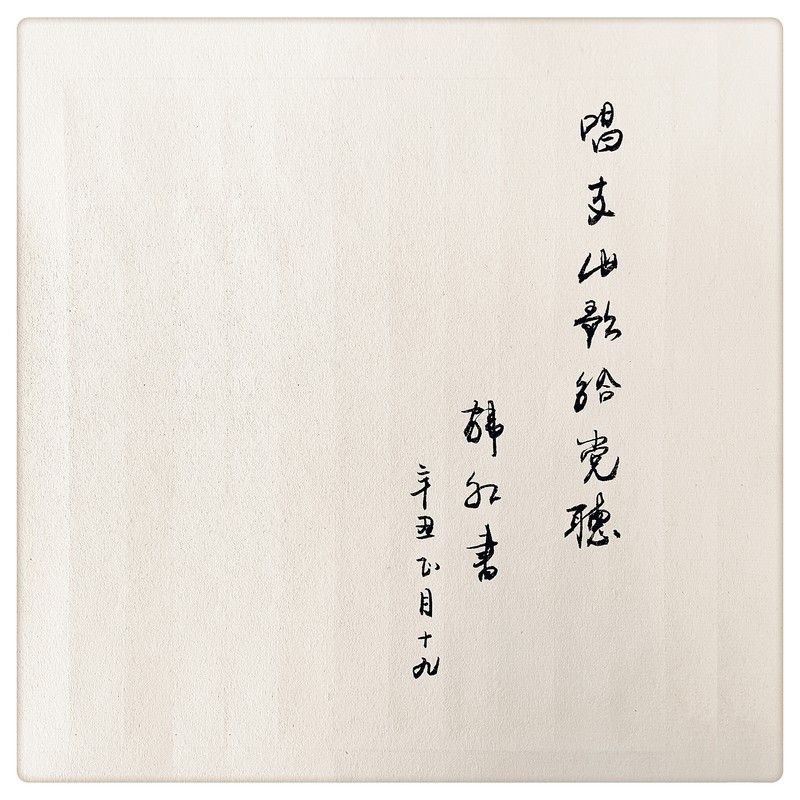 唱支山歌给党聽
韩红书
辛丑正月十九